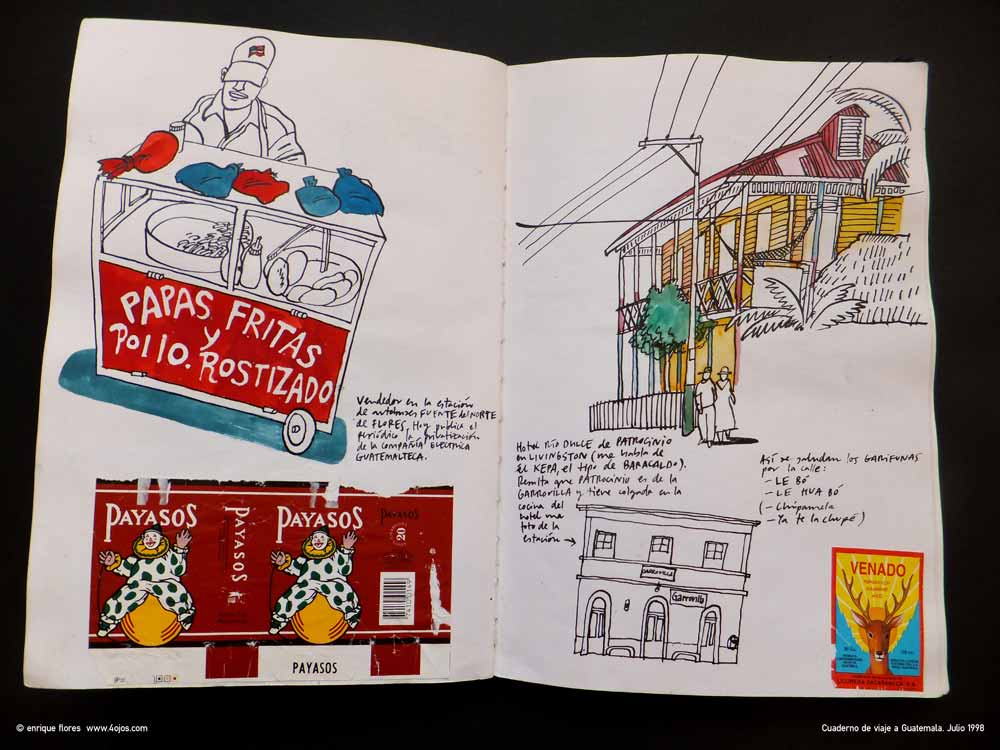 PAPAS FRITAS
y
POllO. ROSTIZADO
vendedor en la estación
de autobuses FUENTE del NORTE
de FLORES. Hoy publica el
periódico la privatización
de la COMPAÑÍA ELÉCTRICA
GUATEMALTECA.
PAYASOS
PAYASOS
PAYASOS
PAYASOS
20
PAYASOS
Hotel RÍO DULCE de PATROCINIO
en LIVINGSTON (me habla de
él KEPA, el tipo de BARACALDO).
Resulta que PATROCINIO es de la
GARROVILLA y tiene colgada en la
cocina del
hotel una
foto de la
estación →
GARROVILLA
Garrovilla
Así se saludan los GARÍFUNAS
por la calle:
- LE BÓ
- LE MUA BÓ
(- Chúpamela
- Ya te la chupé)
VENADO
© enrique flores www.4ojos.com
Cuaderno de viaje a Guatemala. Julio 1998